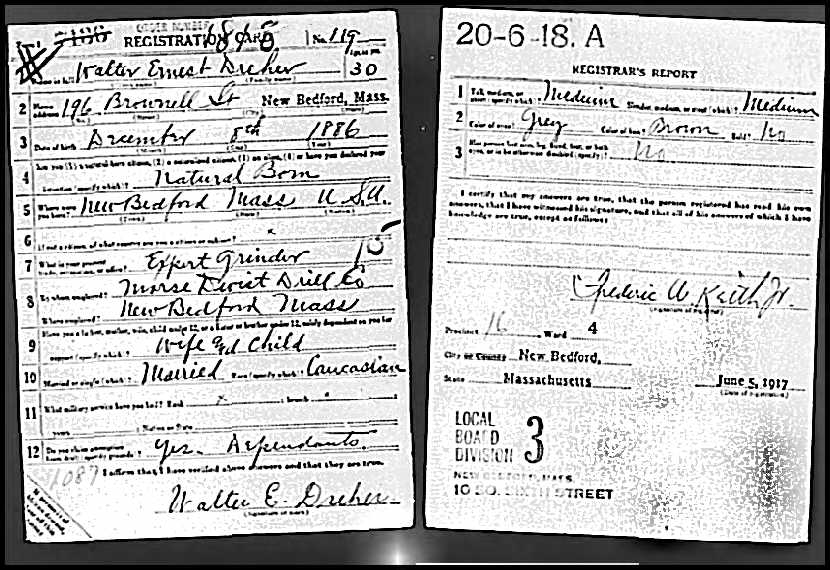 ORDER NUMBER
REGISTRATION CARD No. 119
1815
Walter Ernest Dreher 30
2 Home address 196 Brownell St New Bedford, Mass.
3 Date of birth December 8th 1886
4 Are you (1) a natural born citizen, (2) a naturalized citizen, (3) an alien, (4) or have you declared your
intention (specify which)? Natural Born
5 Where were you born? New Bedford Mass U.S.A.
6 If not a citizen, of what country are you a citizen or subject? x
7 What is your present trade, occupation, or office? Expert Grinder 15
8 By whom employed? Morse Twist Drill Co
Where employed? New Bedford Mass
9 Have you a father, mother, wife, child under 12, or a sister or brother under 12, solely dependent on you for
support (specify which)? Wife and Child
10 Married or single (which)? Married Race (specify which)? Caucasian
11 What military service have you had? Rank x ; branch
years ; Nation or State
12 Do you claim exemption from draft (specify grounds)? Yes. Dependants
1087 I affirm that I have verified above answers and that they are true.
Walter E. Dreher
(Signature or mark)
20-6-18. A
REGISTRAR'S REPORT
1 Tall, medium, or short (specify which)? Medium Slender, medium, or stout (which)? Medium
2 Color of eyes? Grey Color of hair? Brown Bald? No
3 Has person lost arm, leg, hand, foot, or both
eyes, or is he otherwise disabled (specify)? No
I certify that my answers are true, that the person registered has read his own
answers, that I have witnessed his signature, and that all of his answers of which I have
knowledge are true, except as follows:
Frederic W. Keith Jr.
(Signature of registrar)
Precinct 16 Ward 4
City or County New Bedford,
State Massachusetts June 5, 1917
(Date of registration)
LOCAL
BOARD 3
DIVISION
NEW BEDFORD, MASS.
10 SO. SIXTH STREET